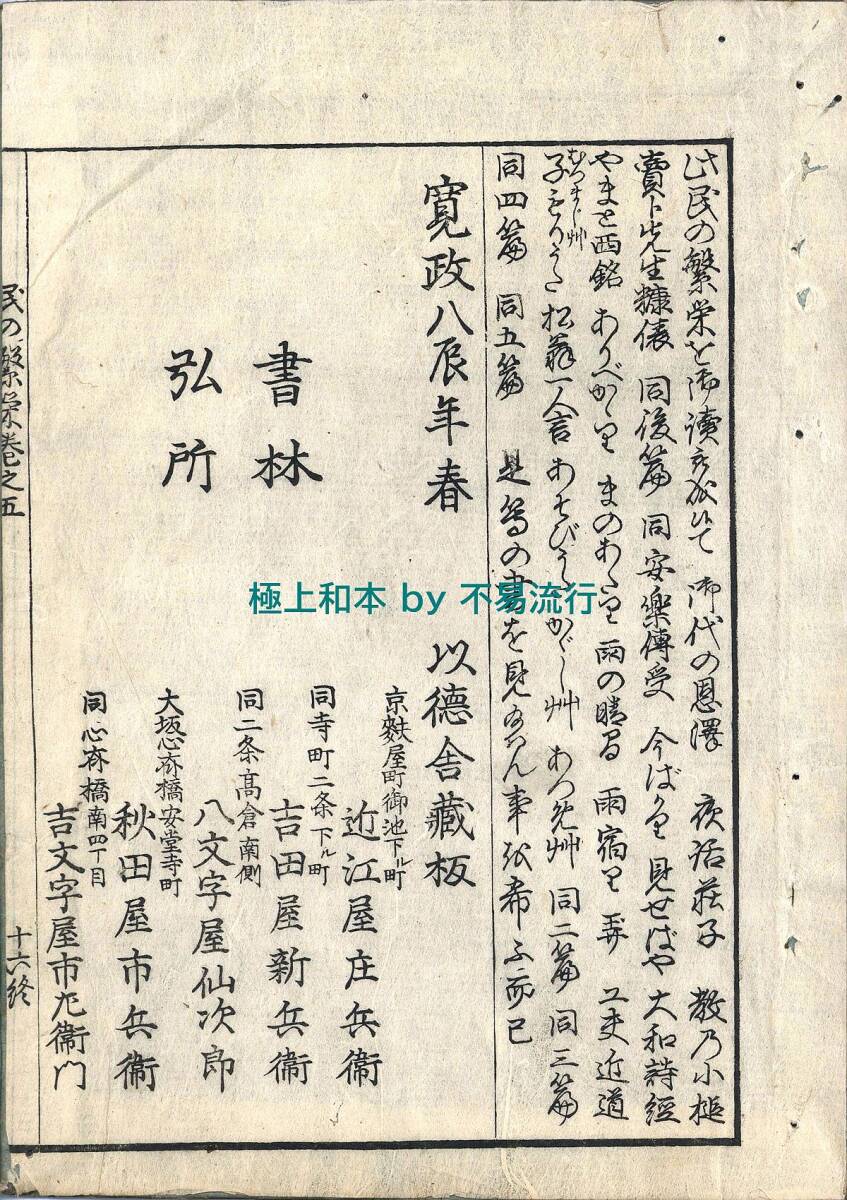 此民の繁栄を御讀 て 御代の恩澤 夜話荘子 教乃小槌
賣卜先生糠俵 同後篇 同安樂傳受 今ばかり 見せばや 大和詩經
やまと西銘 ありべかゝり まのあたり 雨の晴間 雨宿り 弄 工夫近道
子もりうた むつまじ艸 松翁一人言 あそびう かゞし艸 あつめ艸 同二篇 同三篇
同四篇 同五篇 是等の書を見 ん事を希ふ而已
寛政八辰年春 以德舎藏板
書林
弘所
京麸屋町御池下ル町
近江屋庄兵衞
同寺町二条下ル町
吉田屋新兵衞
同二条髙倉南側
八文字屋仙次郎
大坂心斎橋安堂寺町
秋田屋市兵衞
同心斎橋南四丁目
吉文字屋市左衞門
民の繁栄巻之五
十六終
極上和本 by 不易流行